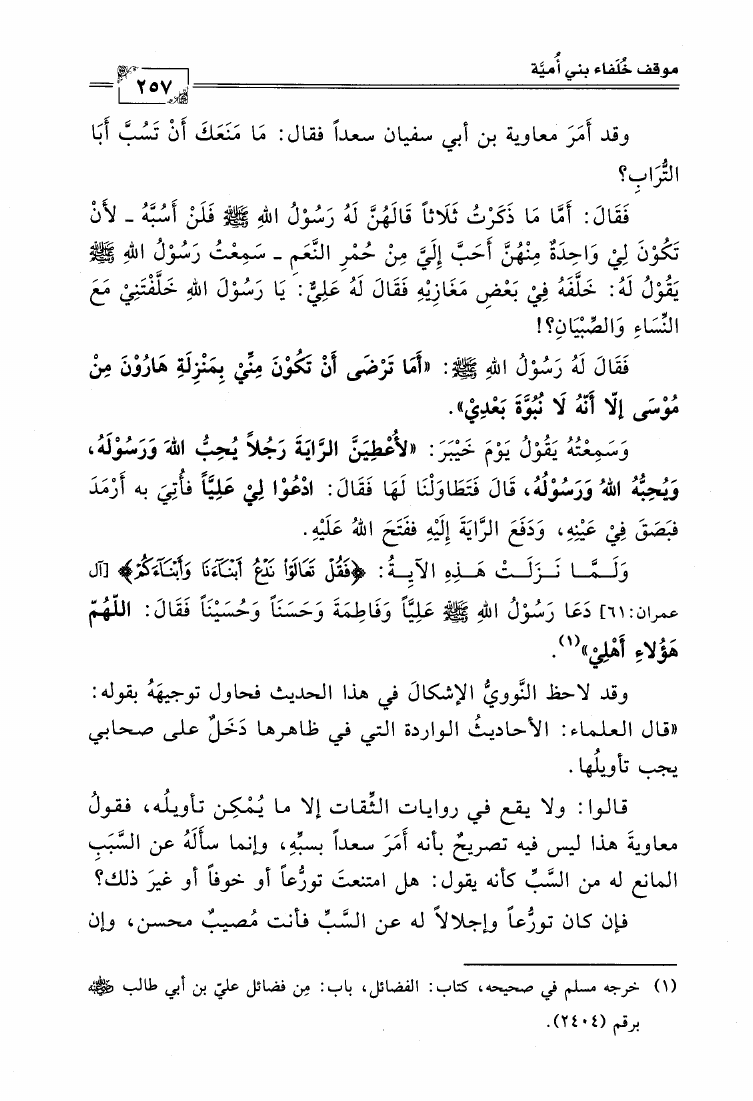 موقف خُلَفاء بني أُميَّة
٢٥٧
وقد أَمَرَ معاوية بن أبي سفيان سعداً فقال: مَا مَنَعَكَ أَنْ تَسُبَّ أَبَا
التُّرَابِ؟
فَقَالَ: أَمَّا مَا ذَكَرْتُ ثَلَاثاً قَالَهُنَّ لَهُ رَسُوْلُ اللهِ ﷺ فَلَنْ أَسُبَّهُ ـ لأَنْ
تَكُوْنَ لِيْ وَاحِدَةٌ مِنْهُنَّ أَحَبَّ إِلَيَّ مِنْ حُمْرِ النَّعَمِ ـ سَمِعْتُ رَسُوْلُ اللهِ ﷺ
يَقُوْلُ لَهُ: خَلَّفَهُ فِيْ بَعْضِ مَغَازِيْهِ فَقَالَ لَهُ عَلِيٌّ: يَا رَسُوْلَ اللهِ خَلَّفْتَنِيْ مَعَ
النِّسَاءِ وَالصِّبْيَانِ؟!
فَقَالَ لَهُ رَسُوْلُ اللهِ ﷺ: «أَمَا تَرْضَى أَنْ تَكُوْنَ مِنِّيْ بِمَنْزِلَةِ هَارُوْنَ مِنْ
مُوْسَى إِلّا أَنَّهُ لَا نُبُوَّةَ بَعْدِيْ».
وَسَمِعْتُهُ يَقُوْلُ يَوْمَ خَيْبَرَ: «لأُعْطِيَنَّ الرَّايَةَ رَجُلاً يُحِبُّ اللهَ وَرَسُوْلَهُ،
وَيُحِبُّهُ اللهُ وَرَسُوْلُهُ، قَالَ فَتَطَاوَلْنَا لَهَا فَقَالَ: ادْعُوْا لِيْ عَلِيَّاً فأُتِيَ به أَرْمَدَ
فبَصَقَ فِيْ عَيْنِهِ، وَدَفَعَ الرَّايَةَ إِلَيْهِ ففَتَحَ اللهُ عَلَيْهِ.
وَلَـمَّـا نَـزَلَـتْ هَـذِهِ الآيَـةُ: ﴿فَقُلْ تَعَالَوْا نَدْعُ أَبْنَآءَنَا وَأَبْنَآءَكُمْ﴾ [آل
عمران: ٦١] دَعَا رَسُوْلُ اللهِ ﷺ عَلِيَّاً وَفَاطِمَةَ وَحَسَنَاً وَحُسَيْنَاً فَقَالَ: اللَّهُمّ
هَؤُلاءِ أَهْلِيْ»(١).
وقد لاحظ النَّوويُّ الإشكالَ في هذا الحديث فحاول توجيهَهُ بقوله:
«قال العلماء: الأحاديثُ الواردة التي في ظاهرها دَخَلٌ على صحابي
يجب تأويلُها.
قالوا: ولا يقع في روايات الثِّقات إلا ما يُمْكِن تأويلُه، فقولُ
معاويةَ هذا ليس فيه تصريحٌ بأنه أَمَرَ سعداً بسبِّهِ، وإنما سأَلَهُ عن السَّبَبِ
المانع له من السَّبِّ كأنه يقول: هل امتنعتَ تورُّعاً أو خوفاً أو غيرَ ذلك؟
فإن كان تورُّعاً وإجلالاً له عن السَّبِّ فأنت مُصيبٌ محسن، وإن
(١) خرجه مسلم في صحيحه، كتاب: الفضائل، باب: مِن فضائل عليّ بن أبي طالب ﷺ
برقم (٢٤٠٤).